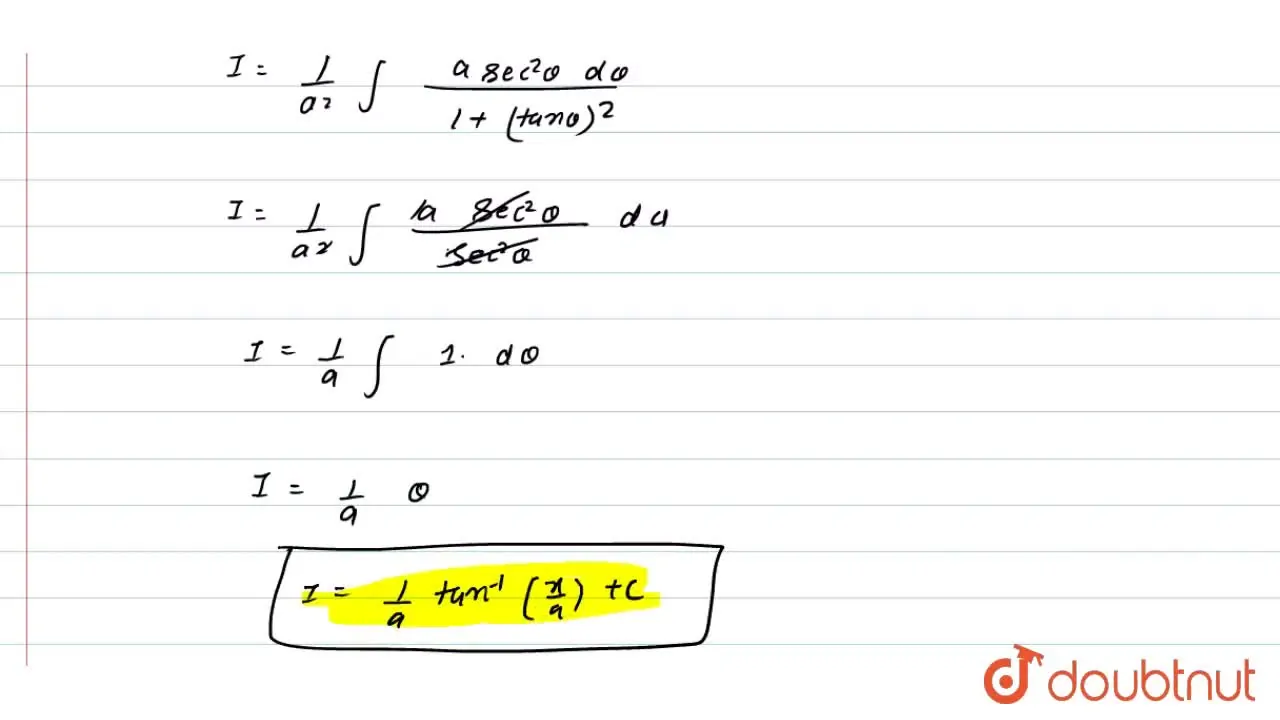 I = 1/a² ∫ a sec²θ dθ / 1 + (tanθ)²
I = 1/a² ∫ a sec²θ / sec²θ dθ
I = 1/a ∫ 1. dθ
I = 1/a θ
I = 1/a tan⁻¹ (x/a) + c
doubtnut